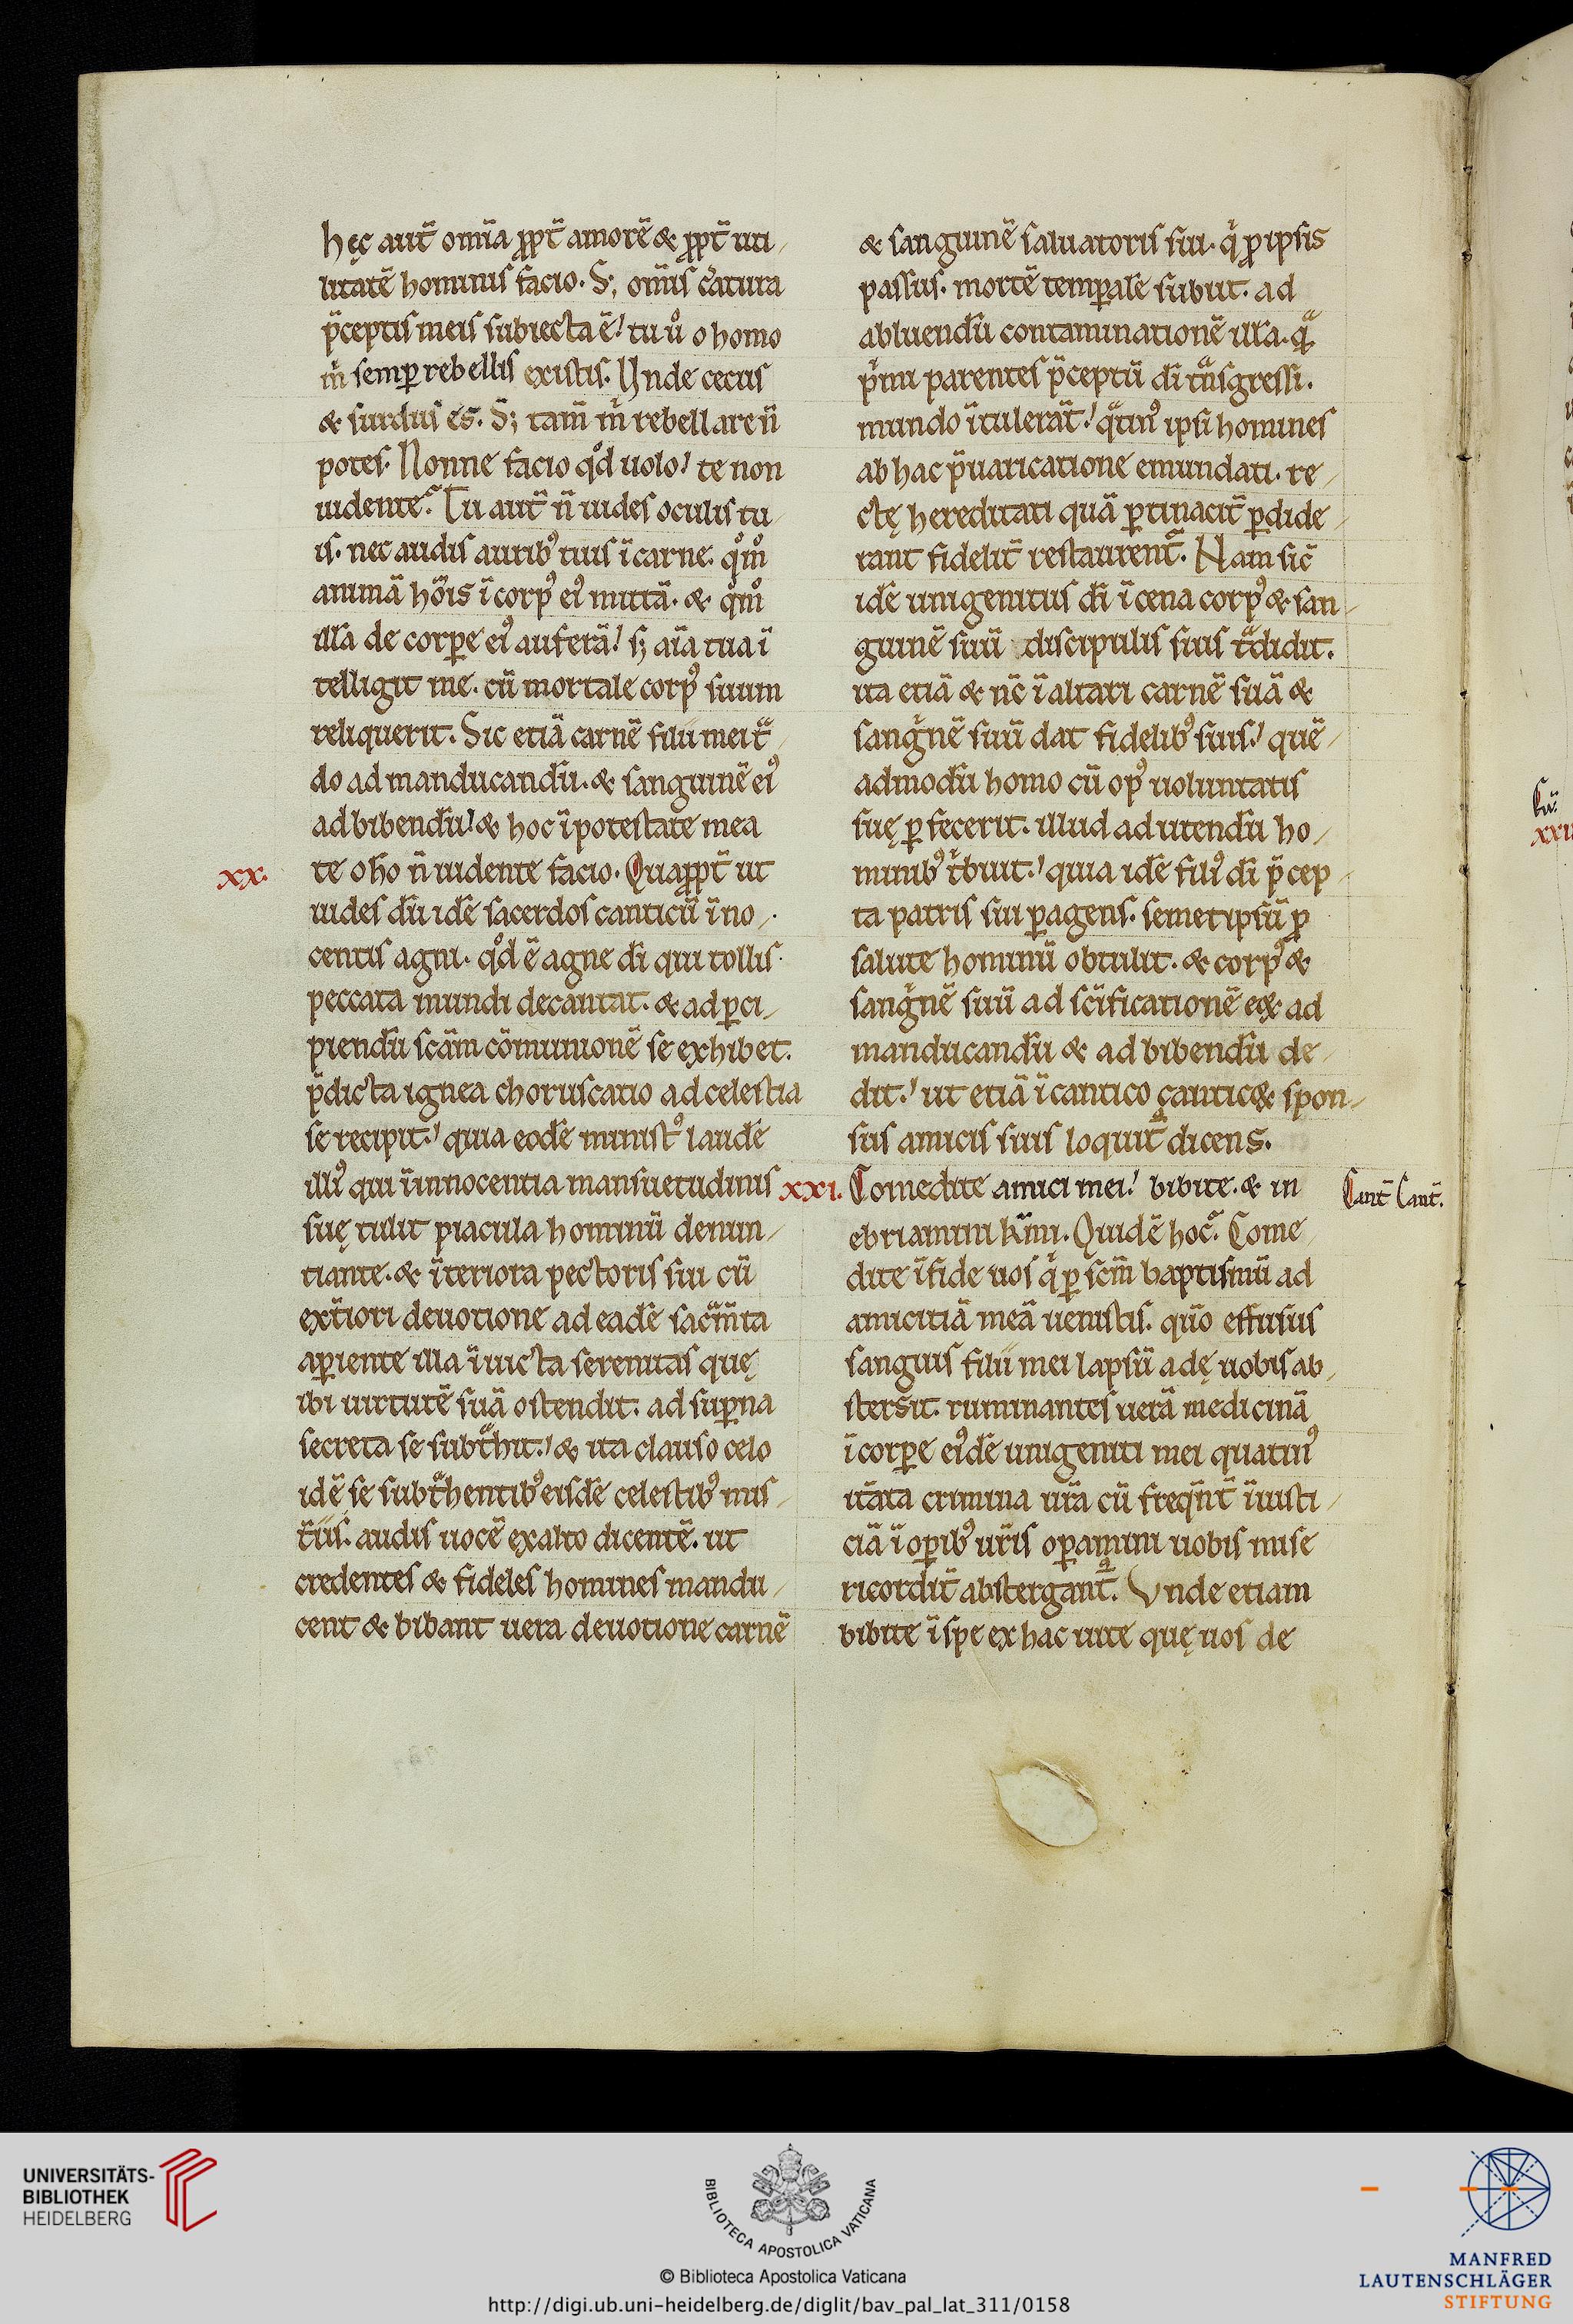 hęc aut̄ om̅ia ꝓpt̄ amorē & ꝓpt̄ uti-
litatē hominis facio. S; om̅is c̄atura
p̄ceptis meis subiecta ē! tu ů o homo
m̅ semꝑ rebellis existis. Unde cecus
& surdus es. S; tam̅ m̅ rebellare n̅
potes. Nonne facio qd̊ uolo! te non
uidente? Tu aut̄ n̅ uides oculis tu-
is. nec audis aurib᷒ tuis ī carne. qm̊
animā ho̅is ī corp᷒ ei᷒ mittā. & qm̊
illā de corꝑe ei᷒ auferā! s; aīa tua ī
telligit me. cū mortale corp᷒ suum
reliquerit. Sic etiā carnē filii mei tͣ-
do ad manducandū. & sanguinē ei᷒
ad bibendū! & hoc ī potestate mea
xx. te o ho̅ n̅ uidente facio. Quaꝓpt̄ ut
uides dū idē sacerdos canticū īno-
centis agni. qd̊ ē agne di̅ qui tollis
peccata mundi decantat. & ad ꝑci-
piendū sc̅am co̅munionē se exhibet.
p̄dicta ignea choruscatio ad celestia
se recipit! quia eodē minist᷒ laudē
illi᷒ qui ī innocentia mansuetudinis
suę tulit piacula hominū denun-
tiante. & īteriora pectoris sui cū
ext̄iori deuotione ad eadē sacͣm̅ta
aꝑiente illa īuicta serenitas quę
ibi uirtutē suā ostendit. ad suꝑna
secreta se subtͣhit! & ita clauso celo
idē se subtͣhentib᷒ eisdē celestib᷒ mis-
t̄iis. audis uocē ex alto dicentē. ut
credentes & fideles homines mandu-
cent & bibant uera deuotione carnē
& sanguinē saluatoris sui. qͥ ꝓ ipsis
passus. mortē temꝑalē subiit. ad
abluendū contaminationē illā. qͣ
pͥmi parentes p̄ceptū di̅ tͣnsgressi.
mundo ītulerāt! qͣtin᷒ ipsi homines
ab hac p̄uaricatione emundati. re-
ctę hereditati quā ꝑtinacit̄ ꝑdide-
rant fidelit̄ restaurent᷑. Nam sic̄
idē unigenitus di̅ ī cena corp᷒ & san-
guinē suū discipulis suis tͣdidit.
ita etiā & nc̅ ī altari carnē suā &
sangͥnē suū dat fidelib᷒ suis! quē-
admodū homo cū op᷒ uoluntatis
suę ꝑfecerit. illud ad utendū ho-
minib᷒ tͥbuit! quia idē fili᷒ di̅ p̄cep-
ta patris sui ꝑagens. semetipsū ꝓ
salute hominū obtulit. & corp᷒ &
sangͥnē suū ad sc̅ificationē eoꝝ ad
manducandū & ad bibendū de-
dit! ut etiā ī cantico canticoꝝ spon-
sus amicis suis loquit᷑ dicens.
xxi. Comedite amici mei! bibite. & in Cant̄ Cant̄.
ebriamini kͥmi. Quid ē hoc? Come
dite ī fide uos qͥ ꝑ sc̅m baptismū ad
amicitiā meā uenistis. quo̅ effusus
sanguis filii mei lapsū adę uobis ab-
stersit. ruminantes uerā medicinā
ī corꝑe ei᷒dē unigeniti mei quatin᷒
it̄ata crimina ur̅a cū freqn̅t̄ īiusti-
ciā ī oꝑib᷒ ur̅is oꝑamini uobis mise
ricordit̄ abstergant᷑. Unde etiam
bibite ī spe ex hac uite quę uos de
Lu̅
UNIVERSITÄTS-
BIBLIOTHEK
HEIDELBERG
BIBLIOTECA APOSTOLICA VATICANA
© Biblioteca Apostolica Vaticana
http://digi.ub.uni-heidelberg.de/diglit/bav_pal_lat_311/0158
MANFRED
LAUTENSCHLÄGER
STIFTUNG